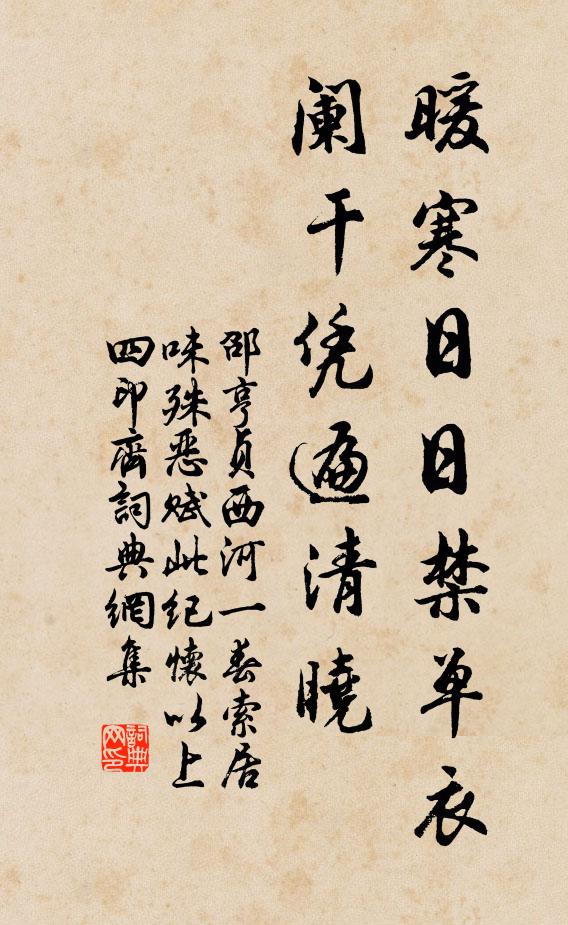 暖寒日日禁单衣
阑干凭遍清曉
邵亨贞西河一春索居
味殊恶赋此纪懷以上
四印齊詞典網集
詞典网印